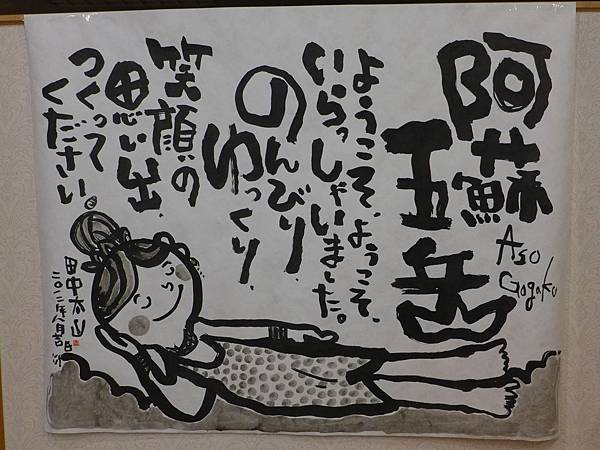 阿蘇
五岳
Aso
Gogaku
ようこそ、ようこそ、
いらっしゃいました。
のんびり
ゆっくり
笑顔の
思い出
つくって
ください
田中太山
二〇一二年八月吉日